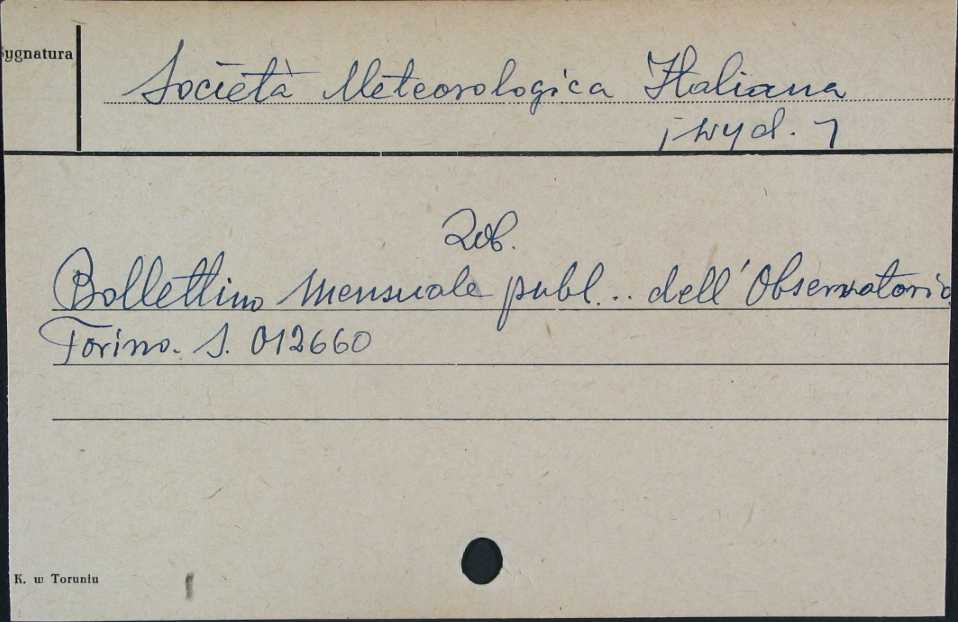 Sygnatura
Società Meteorologica Italiana
[wyd.]
Zob.
Bollettino mensuale publ... dell'Observatorio
Torino. S. 012660
K. w Toruniu